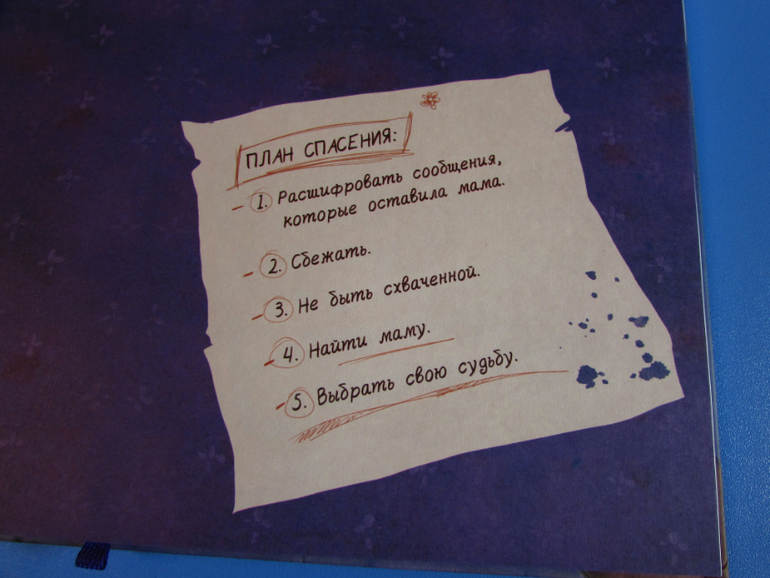 ПЛАН СПАСЕНИЯ:
1. Расшифровать сообщения,
которые оставила мама.
2. Сбежать.
3. Не быть схваченной.
4. Найти маму.
5. Выбрать свою судьбу.